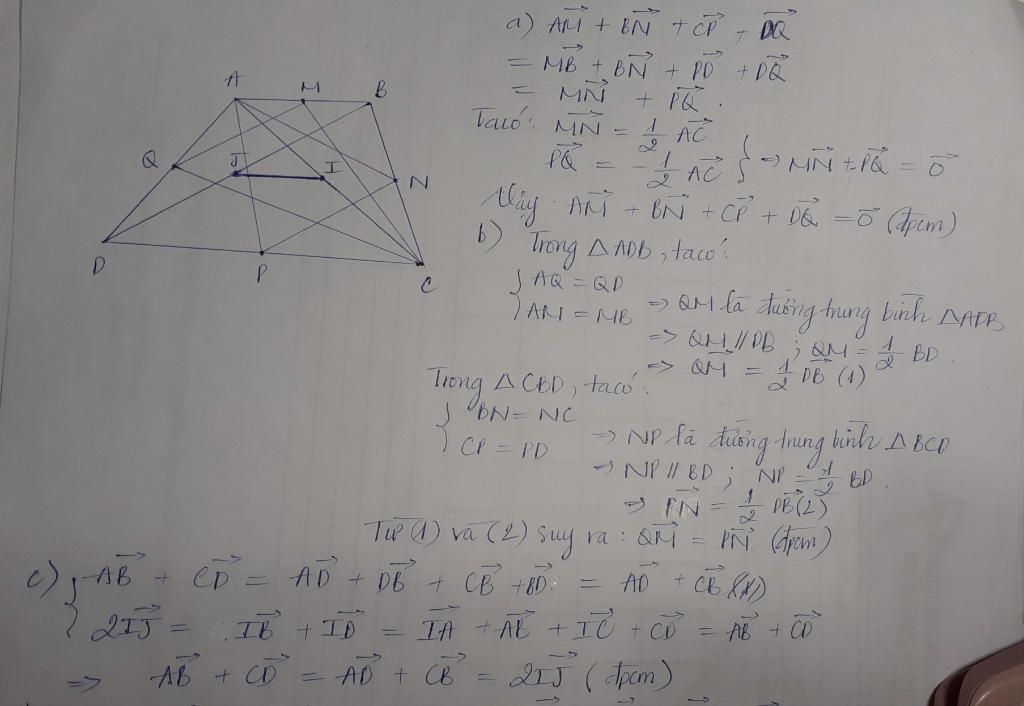 A M B
Q J I N
D P C
a) AM⃗ + BN⃗ + CP⃗ + DQ⃗
= MB⃗ + BN⃗ + PD⃗ + DQ⃗
= MN⃗ + PQ⃗ .
Ta có: MN⃗ = 1/2 AC⃗
PQ⃗ = -1/2 AC⃗ } => MN⃗ + PQ⃗ = 0⃗
Vậy: AM⃗ + BN⃗ + CP⃗ + DQ⃗ = 0⃗ (đpcm)
b) Trong △ADB, ta có:
{ AQ = QD
AM = MB => QM là đường trung bình △ADB
=> QM // DB ; QM = 1/2 BD.
=> QM⃗ = 1/2 DB⃗ (1)
Trong △CBD, ta có:
{ BN = NC
CP = PD => NP là đường trung bình △BCD
=> NP // BD ; NP = 1/2 BD.
=> PN⃗ = 1/2 DB⃗ (2)
Từ (1) và (2) suy ra: QM⃗ = PN⃗ (đpcm)
c) { AB⃗ + CD⃗ = AD⃗ + DB⃗ + CB⃗ + BD⃗ = AD⃗ + CB⃗
2IJ⃗ = IB⃗ + ID⃗ = IA⃗ + AB⃗ + IC⃗ + CD⃗ = AB⃗ + CD⃗
=> AB⃗ + CD⃗ = AD⃗ + CB⃗ = 2IJ⃗ (đpcm)